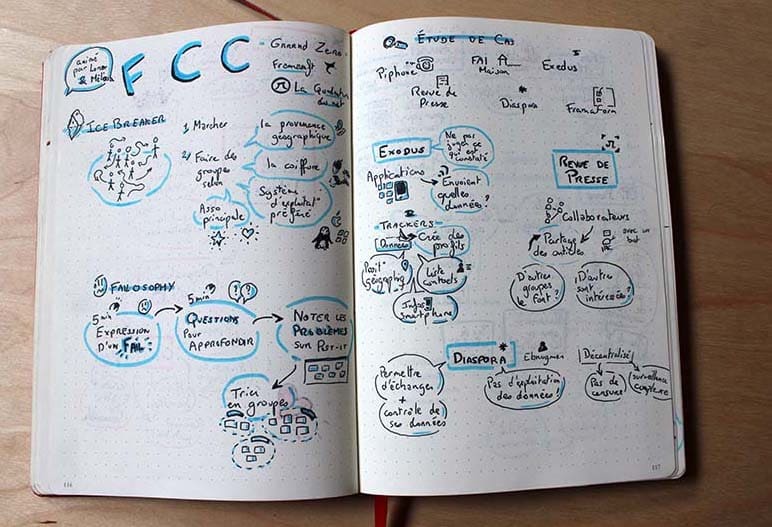 animé
par
&
FCC
- Grand Zero.
Framasoft
La Quadrature
du net
ICE BREAKER
1) Marcher
2) Faire des
groupes
selon
la provenance
géographique
la coiffure
Système
d'exploitat°
préféré
Asso
principale
FAILOSOPHY
5 min
EXPRESSION
D'UN FAIL
5 min
QUESTIONS
POUR
APPROFONDIR
NOTER LES
PROBLÈMES
SUR POST-IT
Trier
en groupes
116
ÉTUDE DE CAS
Piphone
FAI
Maison
Exodus
Revue de
Presse
Diaspora
FramaForm
EXODUS
Ne pas
juger ce
qui est
constaté
Applications
Envoient
quelles
données ?
TRACKERS
Données
Crée des
profils
Posit°
géographiq
Liste
contacts
Infos
smartphone
REVUE DE
PRESSE
Collaborateurs
Partage
des articles
avec un
bot
D'autres
groupes
le font ?
D'autre
sont
intéressé ?
DIASPORA*
Permettre
d'échanger
+
contrôle de
ses données
Pas d'exploitation
des données !
Décentralisé
Pas de
censure
surveillance
complexe
117